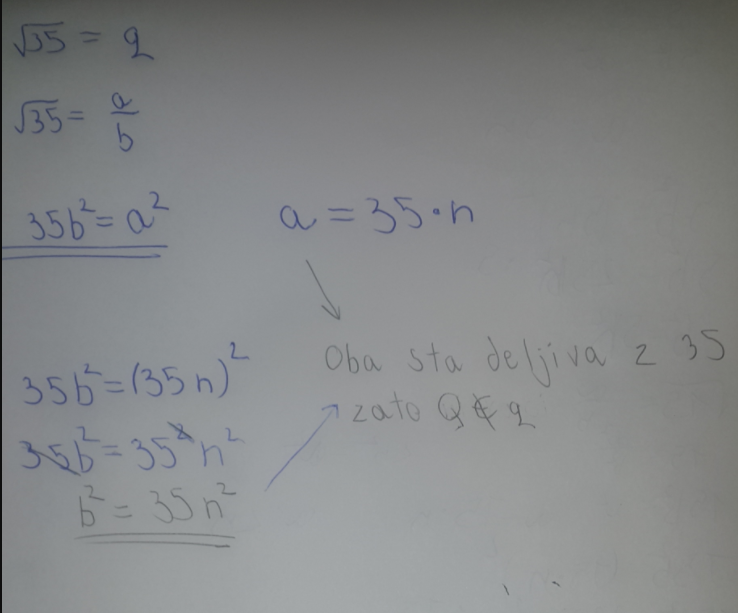 √35 = q
√35 = a/b
35b² = a²
a = 35·n
35b² = (35n)²
35b² = 35²n²
b² = 35n²
Oba sta deljiva z 35
zato Q∉q